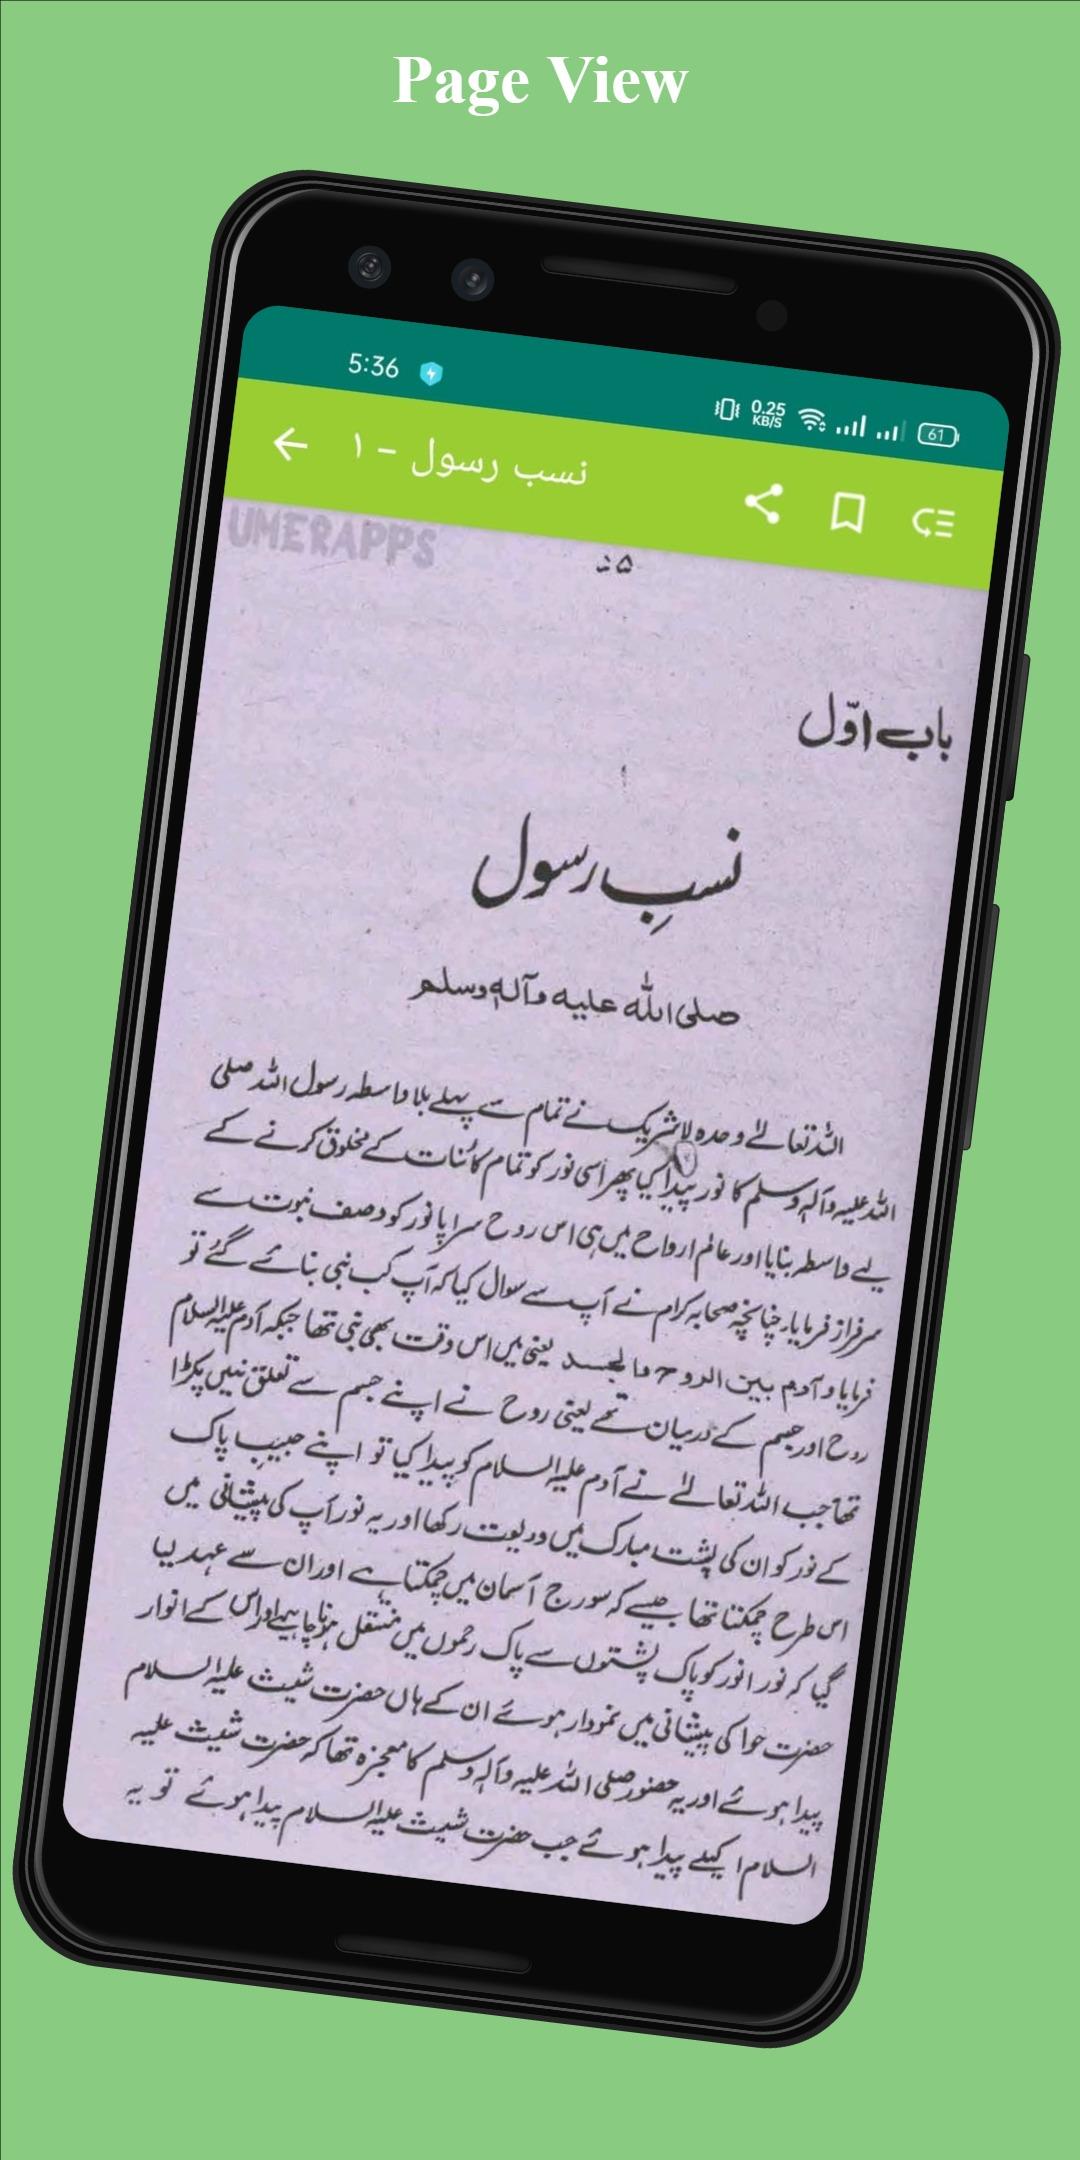 Page View
5:36
0.25
KB/S
61
نسب رسول - ١
UMERAPPS
باب اوّل
نسبِ رسول
صلی اللہ علیہ وآلہٖ وسلم
اللہ تعالےٰ وحدہ لاشریک نے تمام سے پہلے بلا واسطہ رسول اللہ صلی
اللہ علیہ وآلہٖ وسلم کا نور پیدا کیا پھر اسی نور کو تمام کائنات کے مخلوق کرنے کے
لیے واسطہ بنایا اور عالم ارواح میں ہی اس روح سراپا نور کو وصف نبوت سے
سرفراز فرمایا۔ چنانچہ صحابہ کرام نے آپ سے سوال کیا کہ آپ کب نبی بنائے گئے تو
فرمایا و آدم بین الروح والجسد یعنی میں اس وقت بھی نبی تھا جبکہ آدم علیہ السلام
روح اور جسم کے درمیان تھے یعنی روح نے اپنے جسم سے تعلق نہیں پکڑا
تھا جب اللہ تعالےٰ نے آدم علیہ السلام کو پیدا کیا تو اپنے حبیب پاک
کے نور کو ان کی پشت مبارک میں ودیعت رکھا اور یہ نور آپ کی پیشانی میں
اس طرح چمکتا تھا جیسے کہ سورج آسمان میں چمکتا ہے اور ان سے عہد لیا
گیا کہ نور انور کو پاک پشتوں سے پاک رحموں میں منتقل ہونا چاہیے اور اس کے انوار
حضرت حوا کی پیشانی میں نمودار ہوئے ان کے ہاں حضرت شیث علیہ السلام
پیدا ہوئے اور یہ حضور صلی اللہ علیہ وآلہٖ وسلم کا معجزہ تھا کہ حضرت شیث علیہ
السلام اکیلے پیدا ہوئے جب حضرت شیث علیہ السلام پیدا ہوئے تو یہ